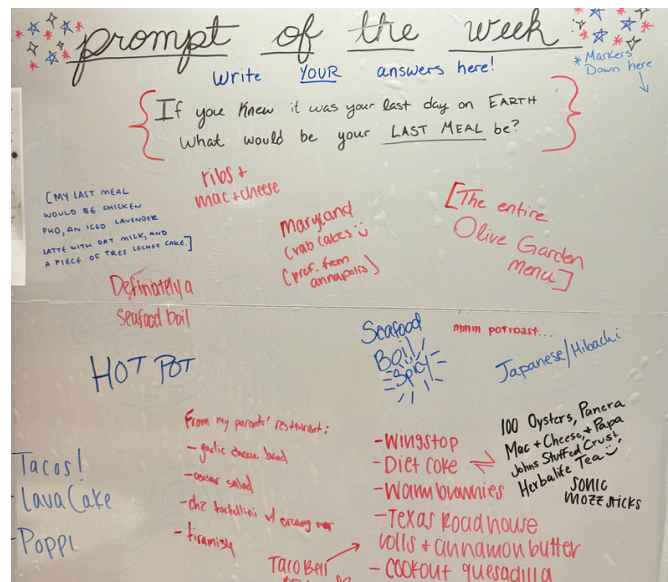 prompt of the week
Write YOUR answers here!
*Markers
Down here
If you knew it was your last day on EARTH
What would be your LAST MEAL be?
[MY LAST MEAL
WOULD BE CHICKEN
PHO, AN ICED LAVENDER
LATTE WITH OAT MILK, AND
A PIECE OF TRES LECHES CAKE.]
ribs +
mac + cheese
Maryland
Crab cakes
(pref. from
annapolis)
[The entire
Olive Garden
menu]
Definitely a
seafood boil
HOT POT
Seafood
Boil
Spicy
mmm potroast...
Japanese/Hibachi
Tacos!
-Lava Cake
-Poppi
From my parents' restaurant:
- garlic cheese bread
- ceasar salad
- chz tortellini w/ creamy
- tiramisu
-Wingstop
-Diet coke
-Warm brownies
-Texas Roadhouse
rolls + cinnamon butter
-Cookout quesadilla
100 Oysters, Panera
Mac + Cheese, + Papa
Johns Stuffed Crust,
Herbalife Tea
SONIC
MOZZ STICKS
Taco Bell